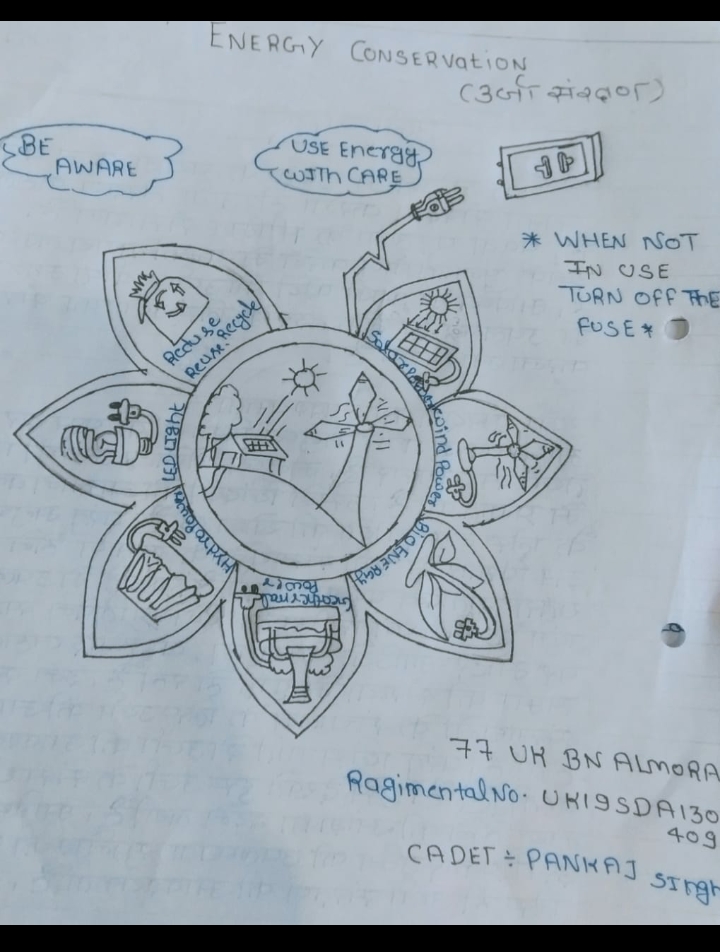 ENERGY CONSERVATION
(ऊर्जा संरक्षण)
BE
AWARE
USE Energy
WITH CARE
* WHEN NOT
IN USE
TURN OFF THE
FUSE *
Reduse
Reuse. Recycle
Solar Power
wind Power
BIO ENERGY
Geothermal
Power
Hydro Power
LED Light
77 UK BN ALMORA
Ragimental No. UK19SDA130
409
CADET ÷ PANKAJ Singh